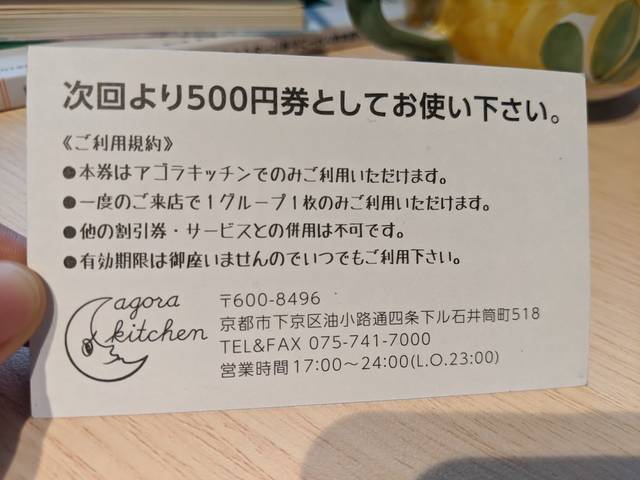 次回より500円券としてお使い下さい。
《ご利用規約》
●本券はアゴラキッチンでのみご利用いただけます。
●一度のご来店で1グループ1枚のみご利用いただけます。
●他の割引券・サービスとの併用は不可です。
●有効期限は御座いませんのでいつでもご利用下さい。
agora
kitchen
〒600-8496
京都市下京区油小路通四条下ル石井筒町518
TEL&FAX 075-741-7000
営業時間17:00～24:00(L.O.23:00)